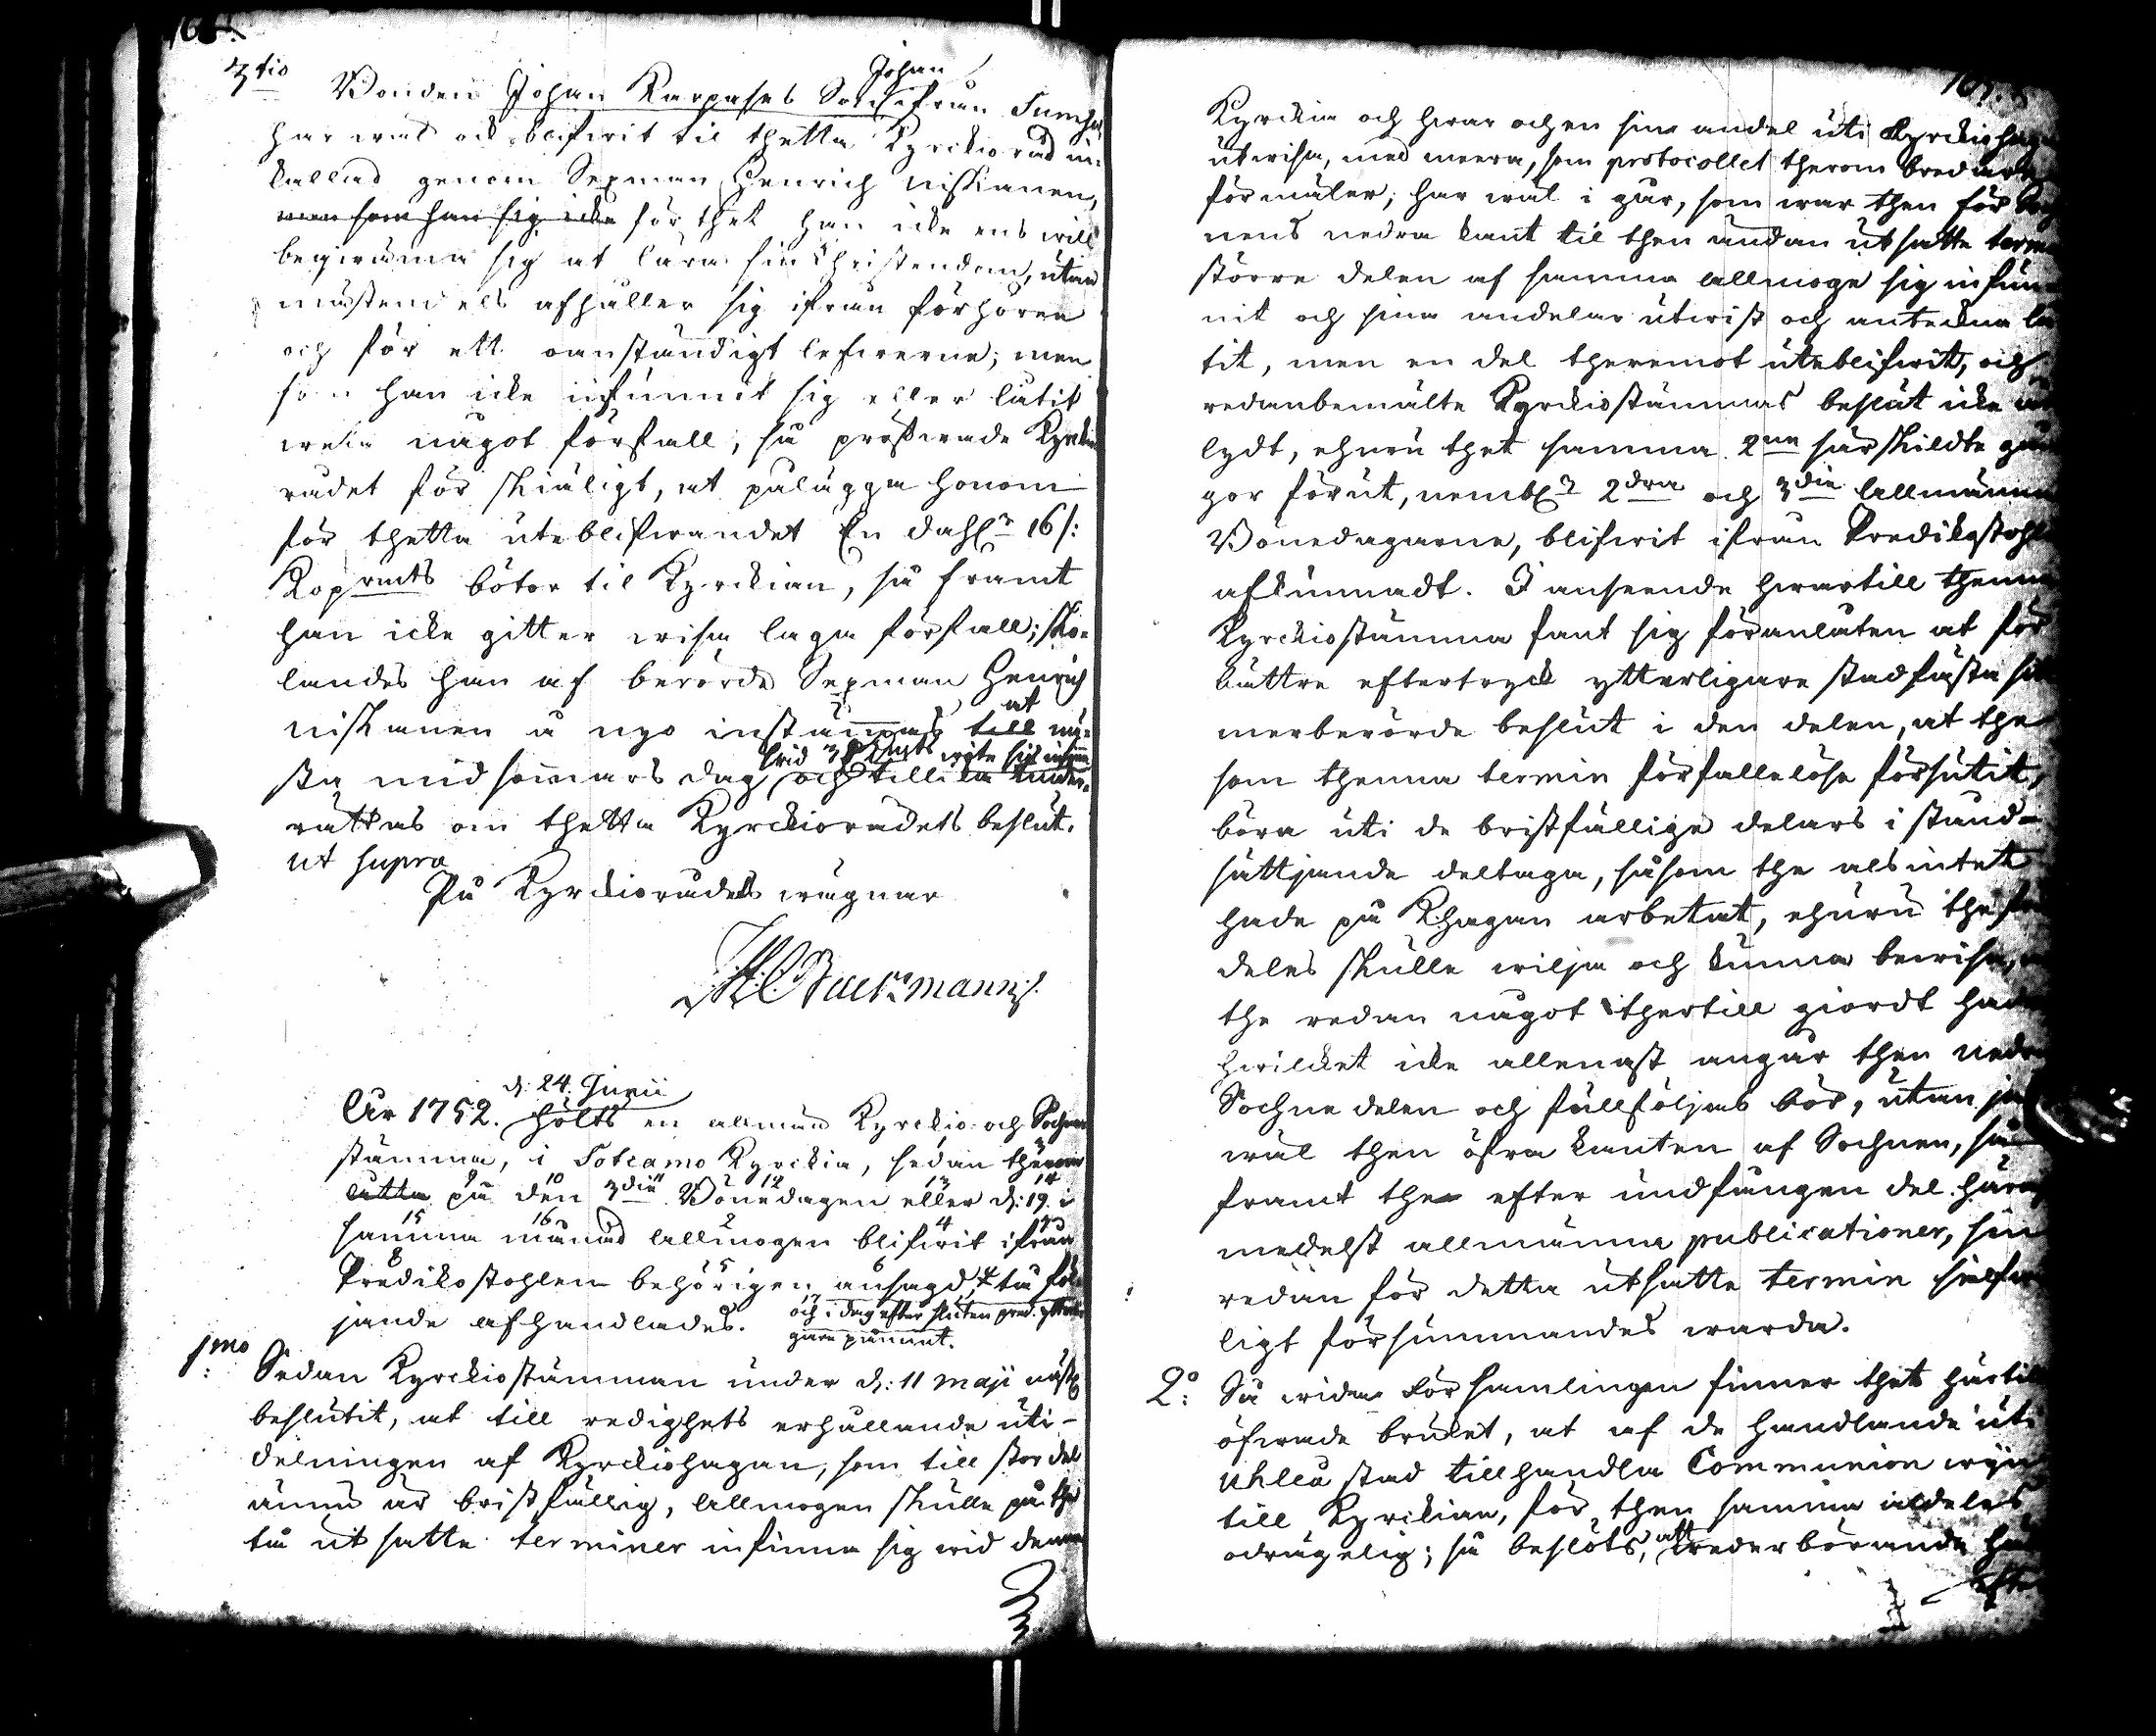 3tio Bonden Johan Karpases Son Johan ifrån
har wäl ock blifwit til thetta Kyrckioråd in-
kallad genom Sexman Henrich Niskanen,
men som han sig icke för thet han icke ens will
beqwäma sig at lära sin Christendom, utan
mästendels afhåller sig ifrån förhören
och för ett oanständigt lefwerne; men
som han icke infunnit sig eller låtit
wisa något förfall, så pröfwade Kyrckio
rådet för skiäligt, at pålägga honom
för thetta uteblifwandet En dahlr 16 /:
Kopmts böter til Kyrckian, så framt
han icke gitter wisa laga förfall; sko-
landes han af berörde Sexman Henrich
Niskanen å nyo instämas till at nä-
sta midsommars dag wid 3 Smts wite sig infinna och tillika under-
rättas om thetta Kyrckiorådets beslut.
ut supra
På Kyrckiorådets wägnar
Backmann
År 1752. d: 24. Junii hölts en allmän Kyrckio och Sochne
stämma, i Sotcamo Kyrckia, sedan therom
låtta på den 3die Bönedagen eller d: 19. i
samma månad Allmogen blifwit ifrån
Predikostohlen behörigen ansagd, tå föl-
jande afhandlades. och i dag efter sluten pred. ytterli
gare påmint.
1mo: Sedan Kyrckiostämman under d: 11 Maji nästl
beslutit, at till redighets erhållande uti-
delningen af Kyrckiohagan, som till stor del
ännu är bristfällig, Allmogen skulle på the
två utsatte terminer infinna sig wid denna
Kyrckia och hwar och en sin andel uti Kyrckiohagan
utwisa, med meera, som protocollet therom bredare
förmäler; har wäl i går, som war then för Soch
nens nedra kant til then ändan utsatte termin
större delen af samma allmoge sig infun-
nit och sina andelar utwist och anteckna lå
tit, men en del theremot uteblifwit, och
redanbemälte Kyrckiostämmas beslut icke åt
lydt, ehuru thet samma 2ne särskildte gån
gor förut, nembl: 2dra och 3die Allmänna
Bönedagarne, blifwit ifrån Predikostohlen
afkunnadt. I anseende hwartill thenna
Kyrckiostämma fant sig föranlåten at för
bättre eftertryck ytterligare stadfästa sitt
merberörde beslut i den delen, at the
som thenna termin förfallelöse försutit,
böra uti de bristfällige delars i stånd-
sättjande deltaga, såsom the als intet
hade på Khagan arbetat, ehuru the fram
deles skulle wilja och kunna bewisa,
the redan något thertill giordt hade
hwilcket icke allenast angår then nedra
Sochne delen och fullföljas bör, utan jäm
wäl then öfra kanten af Sochnen, så
framt the efter undfången del häraf
medelst allmänna publicationer, sin
redan för detta utsatte termin sielfwil
ligt försummandes warda.
2o: Så widar Församlingen finner thet härtil
öfwade bruket, at af de handlande uti
Uhleå stad tillhandla Communion wijn
till Kyrckian, för then samma aldeles
odrägelig; så beslöts, att wederbörande här
efter